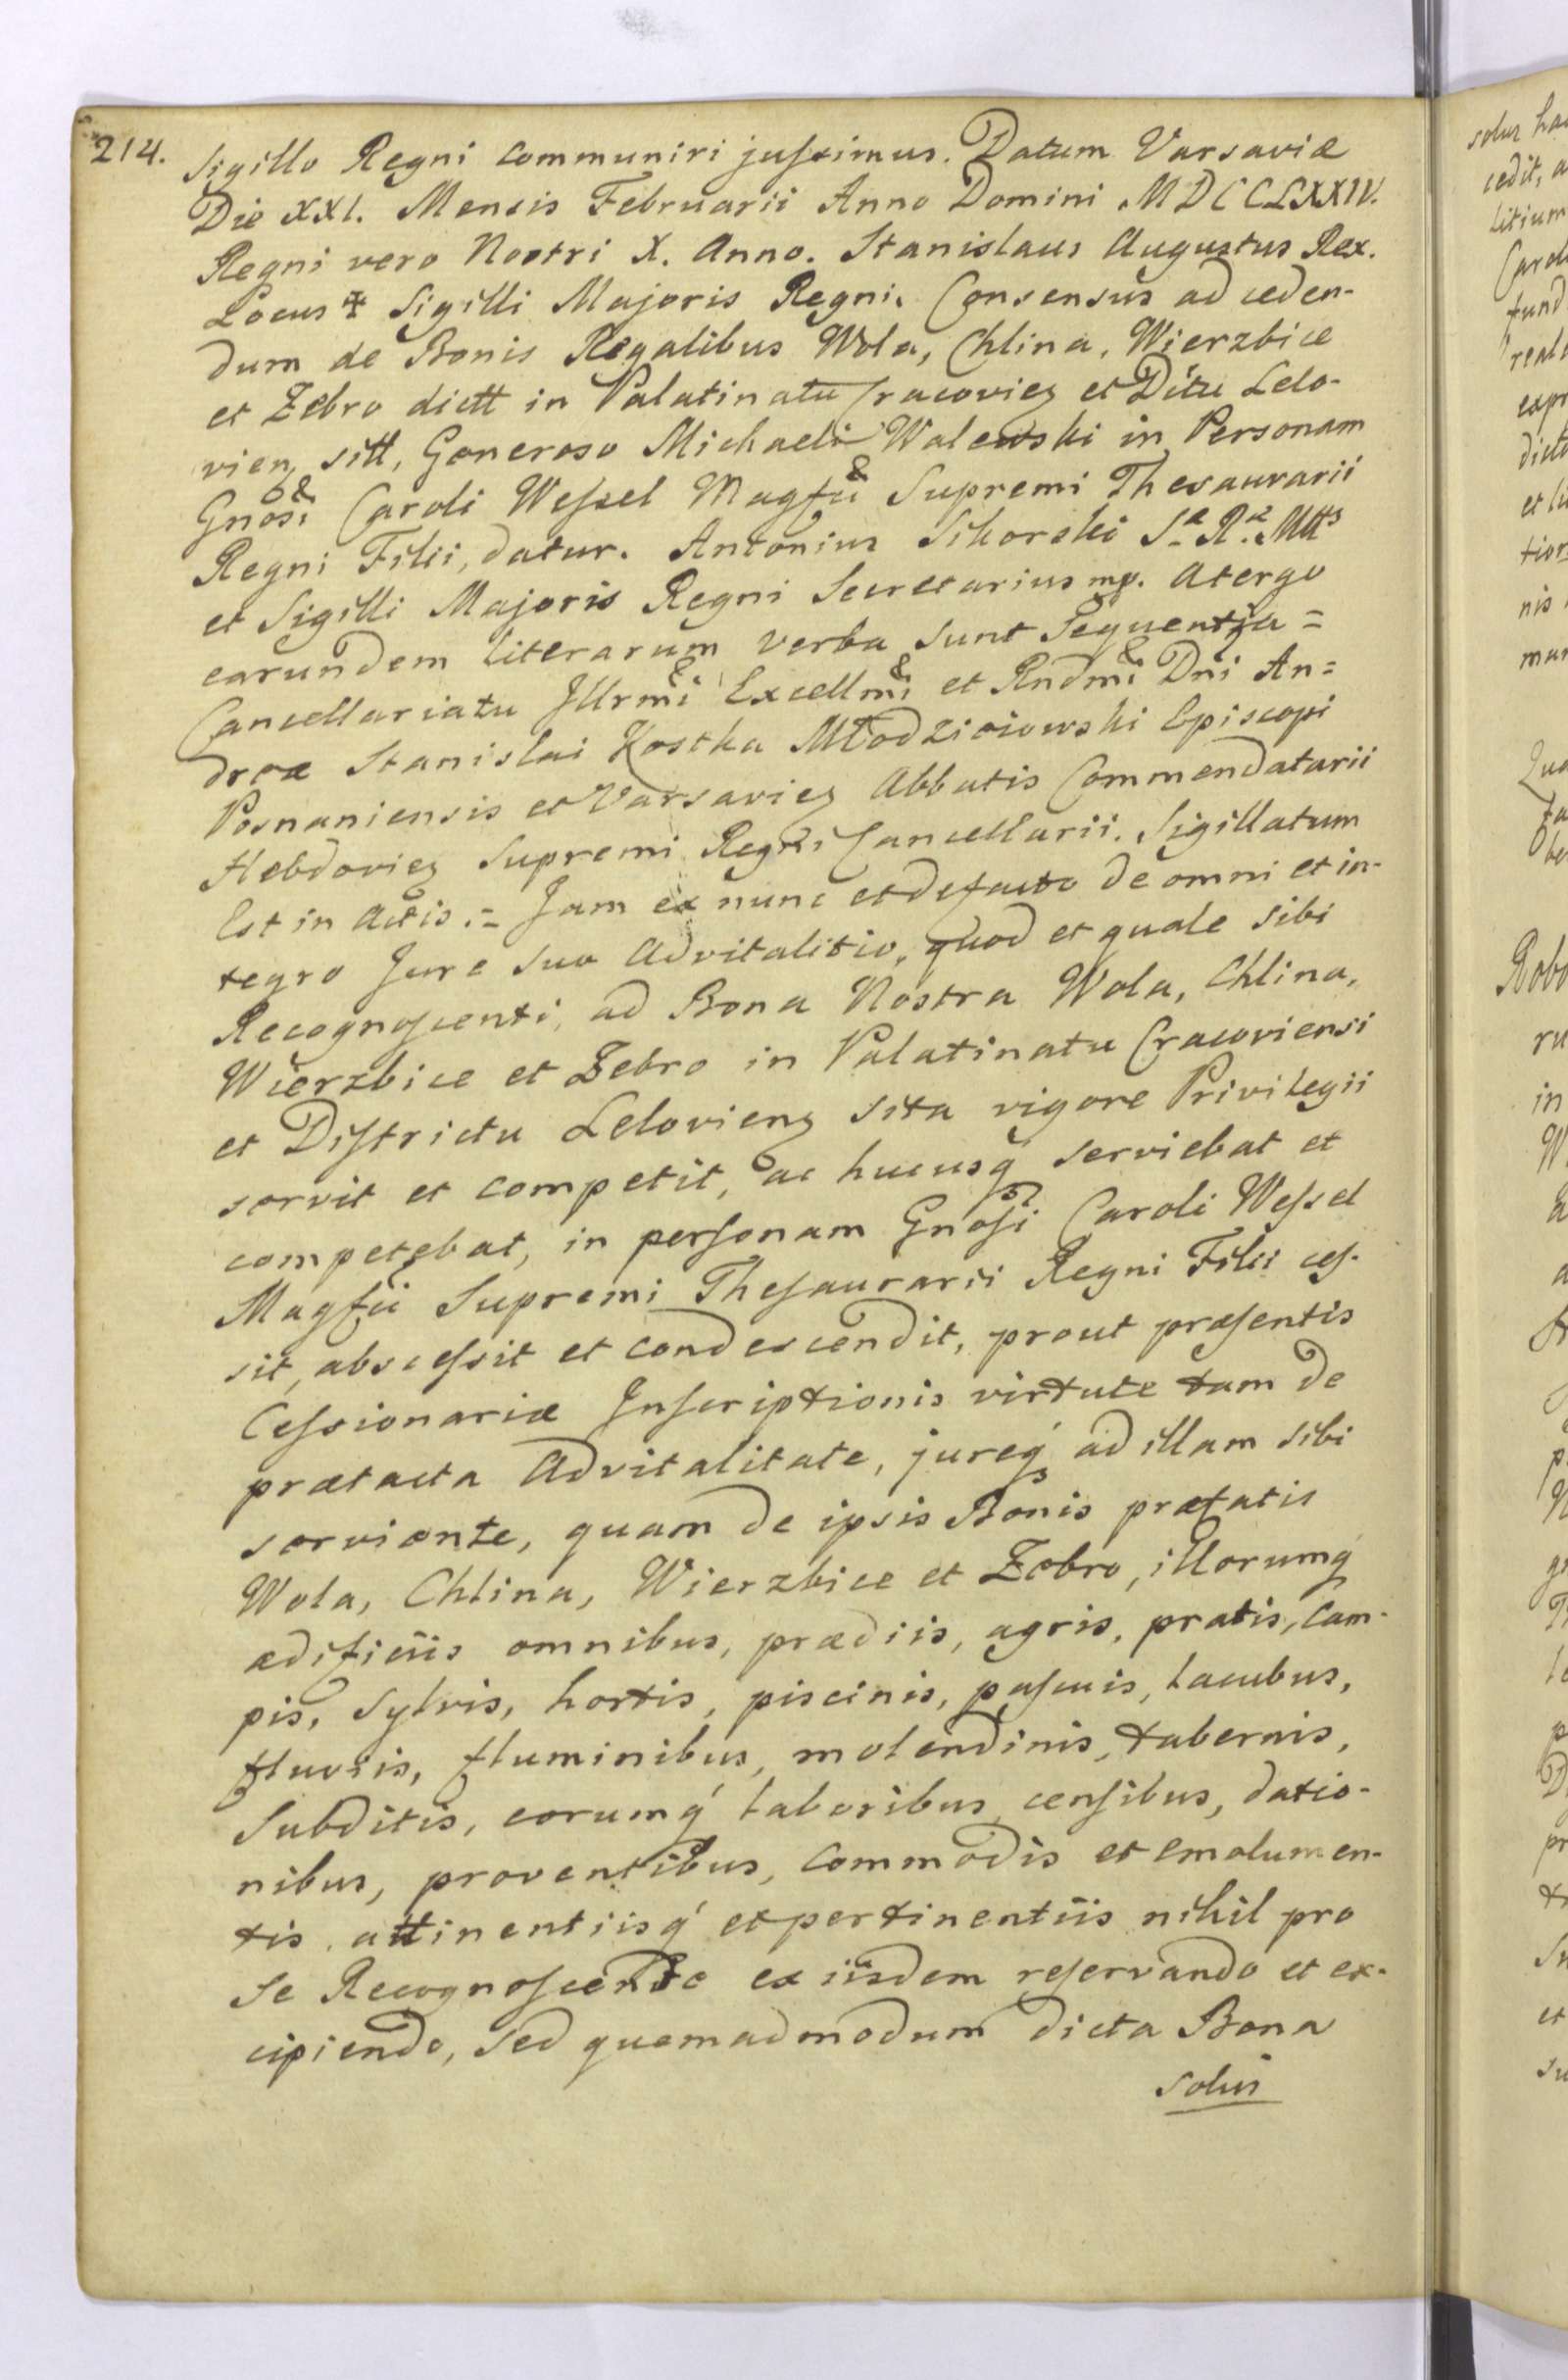 214.
Sigillo Regni communiri jussimus. Datum Varsaviæ
Die XXI. Mensis Februarii Anno Domini MDCCLXXIV.
Regni vero Nostri X. Anno. Stanislaus Augustus Rex.
Locus ✠ Sigilli Majoris Regni. Consensus ad ceden-
dum de Bonis Regalibus Wola, Chlina, Wierzbice
et Zebro dictt in Palatinatu Cracovien et Dittu Lelo-
vien sitt, Generoso Michaeli Walewski in Personam
Gnosi Caroli Wessel Magfci Supremi Thesaurarii
Regni Filii, datur. Antonius Sikorski Sæ Ræ Mtts
et Sigilli Majoris Regni Secretarius mp. Atergo
earundem literarum verba sunt Sequentja =
Cancellariatu Illrmi Excellmi et Rndmi Dni An=
dreæ Stanislai Kostka Młodzieiowski Episcopi
Posnaniensis et Varsavien Abbatis Commendatarii
Hebdovien Supremi Regni Cancellarii. Sigillatum
Est in Actis. = Jam ex nunc et defacto de omni et in-
tegro Jure suo Advitalitio, quod et quale sibi
Recognoscenti, ad Bona Nostra Wola, Chlina,
Wierzbice et Zebro in Palatinatu Cracoviensi
et Districtu Lelovien sita vigore Privilegii
servit et competit, ac hucusq serviebat et
competebat, in personam Gnosi Caroli Wessel
Magfci Supremi Thesaurarii Regni Filii ces-
sit, abscessit et condescendit, prout præsentis
Cessionariæ Inscriptionis virtute tam de
prætacta Advitalitate, jureq ad illam sibi
serviente, quam de ipsis Bonis præfatis
Wola, Chlina, Wierzbice et Zebro, illorumq
ædificiis omnibus, prædiis, agris, pratis, Cam-
pis, Sylvis, hortis, piscinis, pascuis, lacubus,
fluviis, fluminibus, molendinis, tabernis,
Subditis, eorumq laboribus, censibus, datio-
nibus, proventibus, commodis et emolumen-
tis, attinentiisq et pertinentiis nihil pro
se Recognoscente ex iisdem reservando et ex-
cipiendo, sed quemadmodum dicta Bona
solus